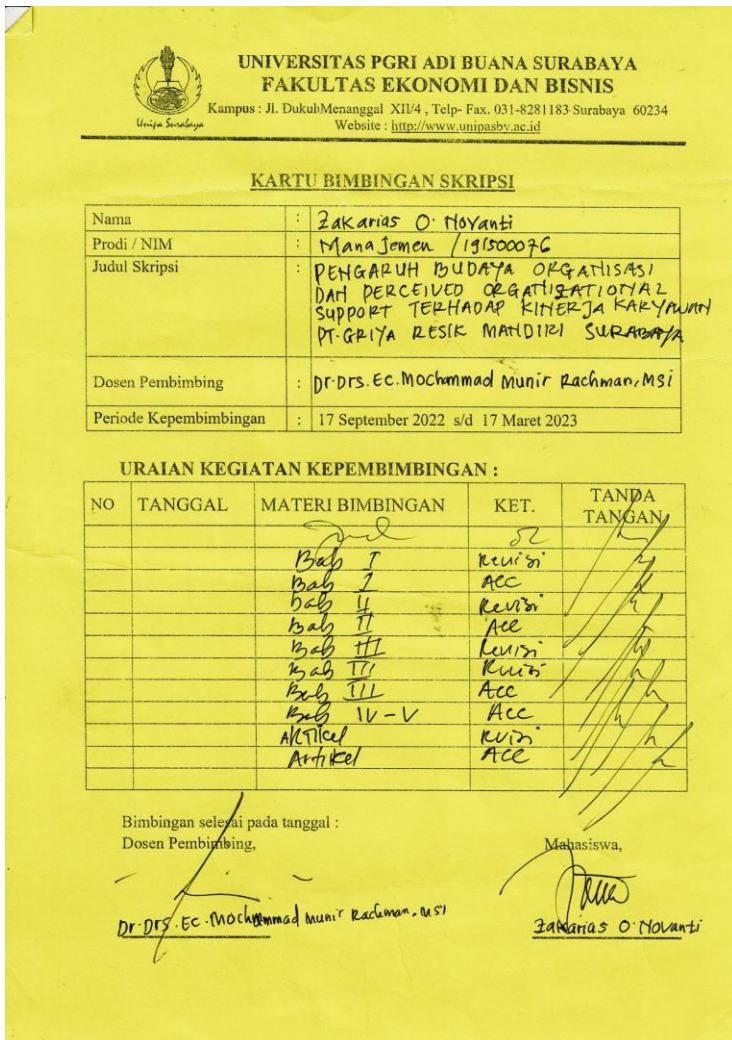 UNIVERSITAS PGRI ADI BUANA SURABAYA
FAKULTAS EKONOMI DAN BISNIS
Kampus : Jl. DukuhMenanggal XII/4 , Telp- Fax. 031-8281183 Surabaya 60234
Website : http://www.unipasby.ac.id
Unipa Surabaya
KARTU BIMBINGAN SKRIPSI
Nama : Zakarias O. Novanti
Prodi / NIM : Manajemen /191500076
Judul Skripsi : PENGARUH BUDAYA ORGANISASI
DAN PERCEIVED ORGANIZATIONAL
SUPPORT TERHADAP KINERJA KARYAWAN
PT. GRIYA RESIK MANDIRI SURABAYA
Dosen Pembimbing : Dr. Drs. Ec. Mochammad Munir Rachman, MSi
Periode Kepembimbingan : 17 September 2022 s/d 17 Maret 2023
URAIAN KEGIATAN KEPEMBIMBINGAN :
NO TANGGAL MATERI BIMBINGAN KET. TANDA
TANGAN
Bab I Revisi
Bab I Acc
bab II Revisi
Bab II Acc
Bab III Revisi
Bab III Revisi
Bab III Acc
Bab IV - V Acc
Artikel Revisi
Artikel Acc
Bimbingan selesai pada tanggal :
Dosen Pembimbing, Mahasiswa,
Dr. Drs. Ec. Mochammad Munir Rachman. MSi
Zakarias O. Novanti